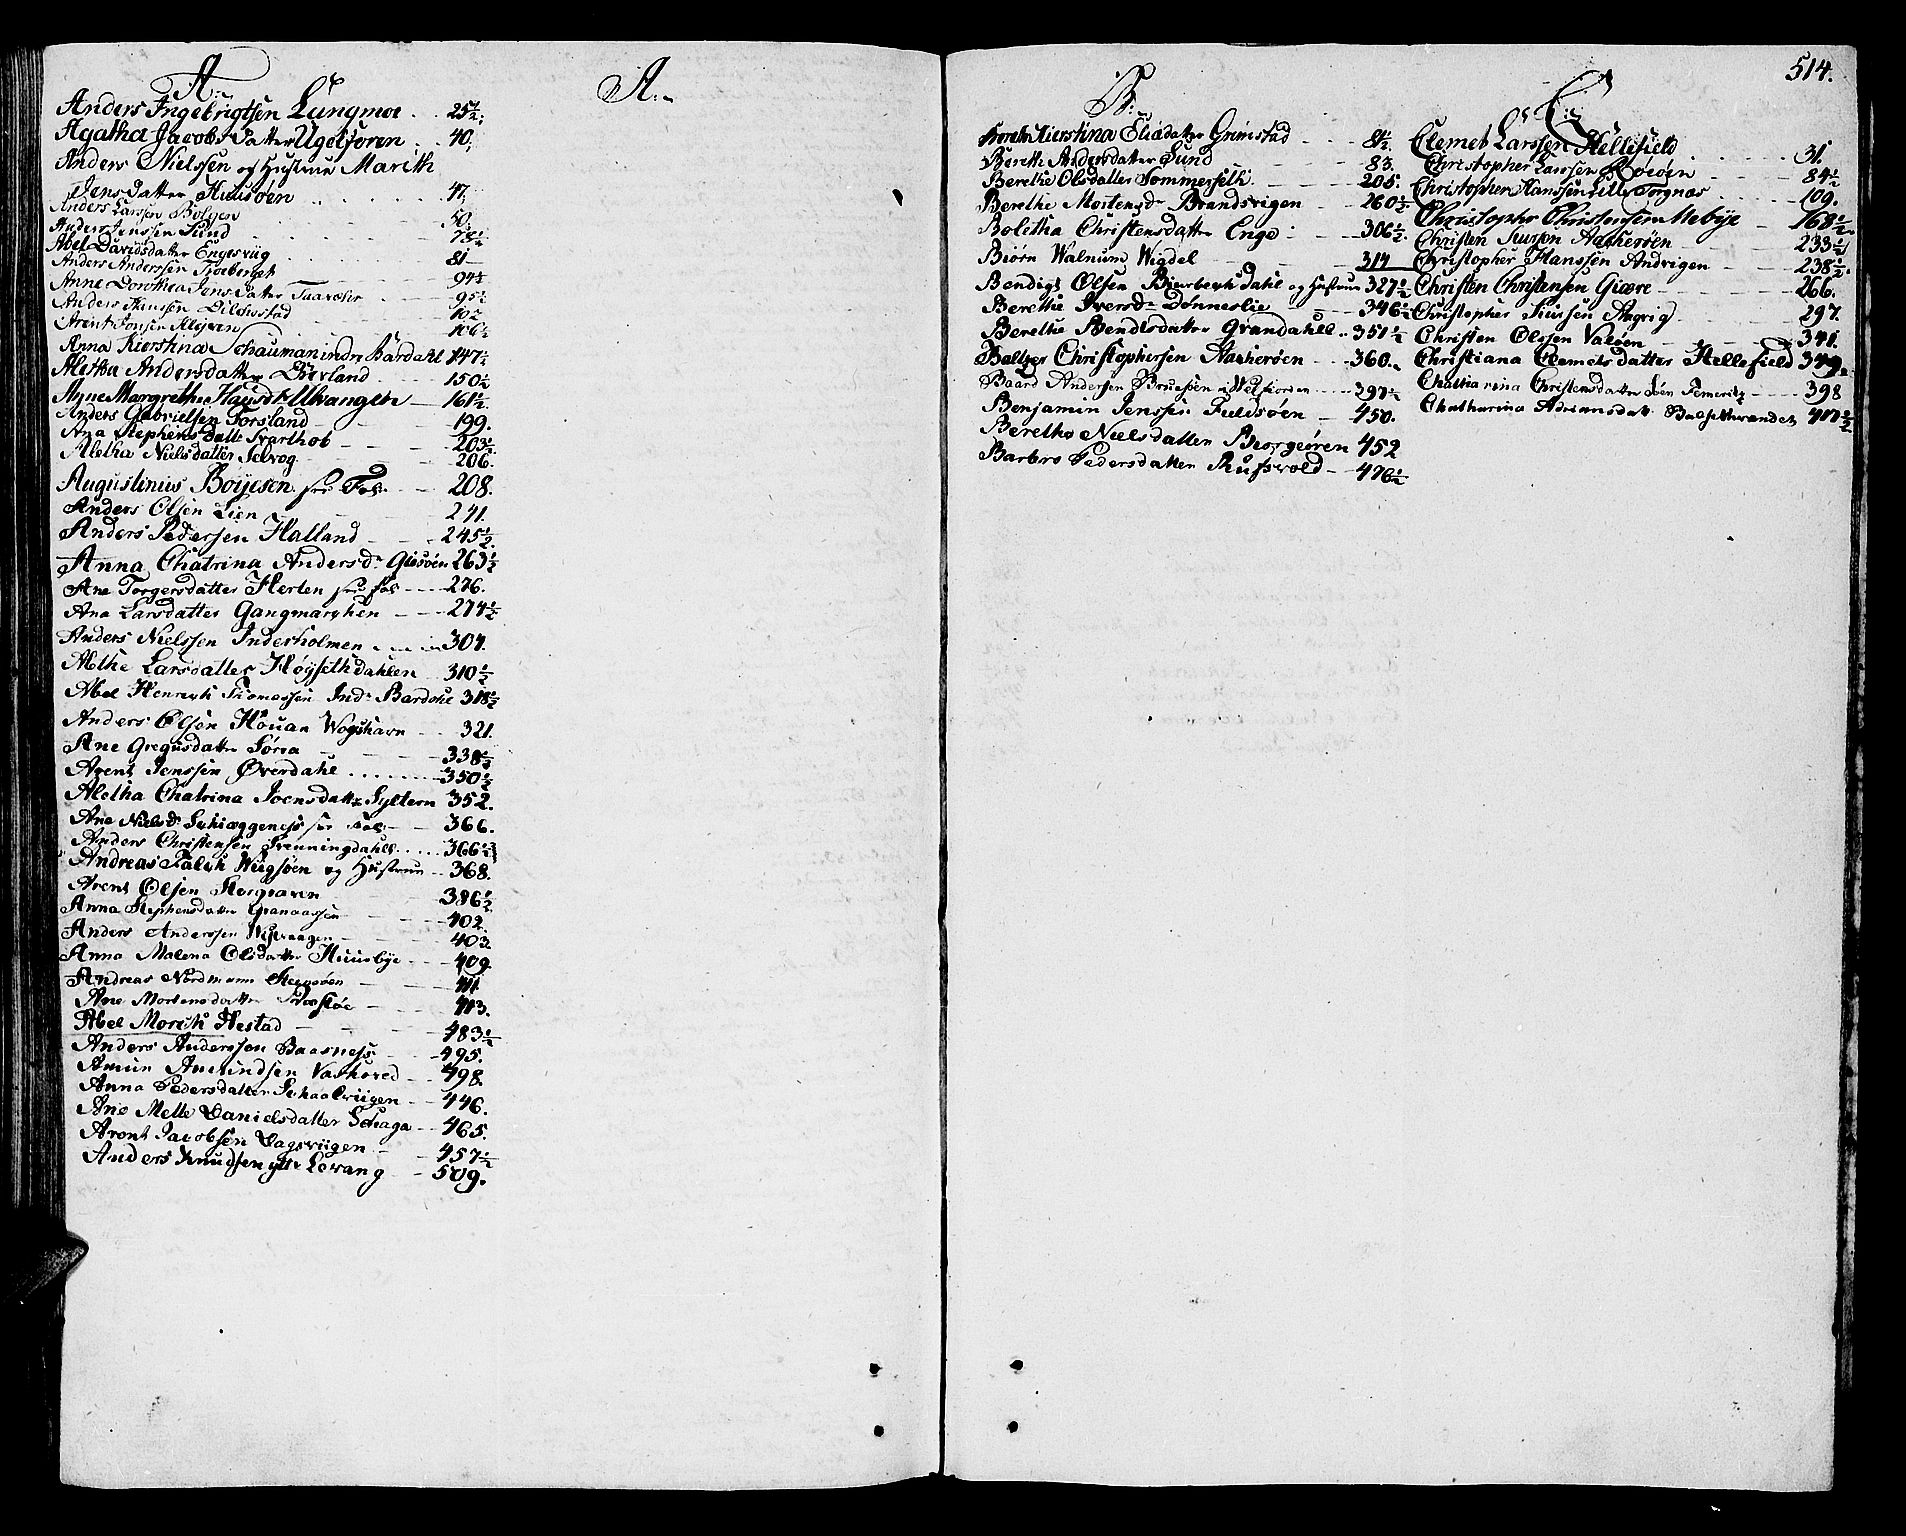 A:
Anders Ingebrigtsen Lungmoe . . 25½.
Agatha Jacobs Datter Ugelfloren . . 40.
Anders Nielssen og Hustrue Marith
Jensdatter Huusøen . . . . 47.
Anders Larssen Bolgen 50.
Anders Jenssen Sund 78½
Abel Davidsdatter Engesviig 81
Anders Anderssen Sjoeberget 94½
Anne Dorothea Jens Datter 95½
Anders Hanssen Dilowstad 102
Arent Jonsen Klijven 106½
Anna Kierstina Schauman indre Bardahl 147½
Aletha Andersdatter Dverland 150½
Agne Margrethe Hausdr Ulvangen 161½
Anders Gabrielsen Forsland 199.
Ana Stephens datt. Svarthob 203½
Aletha Nielsdatter Selvog 206.
Augustinus Bøijesen see Fol. 208.
Anders Olsen Lien 241.
Anders Pedersen Halland 245½
Anna Chatrina Andersdr Giesøen 263½
Ane Torgersdatter Herten see fol 276.
Ana Larsdatter Gangmarchen 274½
Anders Nielssen Inderholmen 304.
Alethe Larsdatter Høyseth dahlen 310½
Abel Henrich Thomessen Indr Bardahl 318½
Anders Olsen Houan Wogshavn 321.
Ane Gregusdatter Sørra 338½
Arent Jenssen Øverdahl 350½
Aletha Chatrina Joensdatter Syltern 352.
Ane Nielsdr Schieggenes see Fol 366.
Anders Christensen Grenningdahl 366½
Andreas Falch Wiigsøen og Hustrue 368.
Arent Olsen Storgraven 386½
Anna Stephensdatter Granaassen 402.
Anders Anderssen 403
Anna Malena Olsdatter Huusbye 409.
Andreas Nordmann Steensøen 411
Ane Mortensdatter 413.
Abel Morch Hestad 483½
Anders Anderssen Baasness 495.
Amun Amundsen Vashoved 498.
Anna Pedersdatter Schaalviigen 446.
Ane Mette Danielsdatter Schaga 465.
Aront Jacobsen Dagsviigen 457½
Anders Knudsen ytr Levang 509.
A:
B:
Kierstina Eliædatter Grimstad 81½.
Berethe Andersdatter Sund 83.
Berethe Olsdatter Sommerseth 205.
Berethe Mortensdr Brandsvigen 260½
Bolitha Christensdatter Enge 306½.
Biørn Walnum Wigdel 314
Bendigt Olsen Bierberghdahl og Hustrue 327½
Berethe Iversdr Dønneslie 346½
Berethe Bendtsdatter Grandahl 351½
Baltzer Christophersen Aacherøen 360.
Baard Andersen Bruesøen i Wefsioren 397½
Benjamin Jenssen Fieldsøen 450.
Berethe Nielsdatter Borgeøren 452
Barbro Pedersdatter Rufsvold 470½
514.
C:
Clemet Larssen Hellefield 31.
Christopher Larssen Røeøen 84½
Christopher Hanssen Lille Tognæs 109.
Christopher Christensen Nebye 168½
Christen Siursen Aacherøen 233½
Christopher Hanssen Andvigen 238½.
Christen Christensen Giære 266.
Christopher Siursen Aagvig 297.
Christen Olssen Valøen 341.
Christiana Clemetsdatter Hellefield 349.
Chatharina Christensdatter Søen Femeritz 398
Chatharina Adriansdatt. 417½